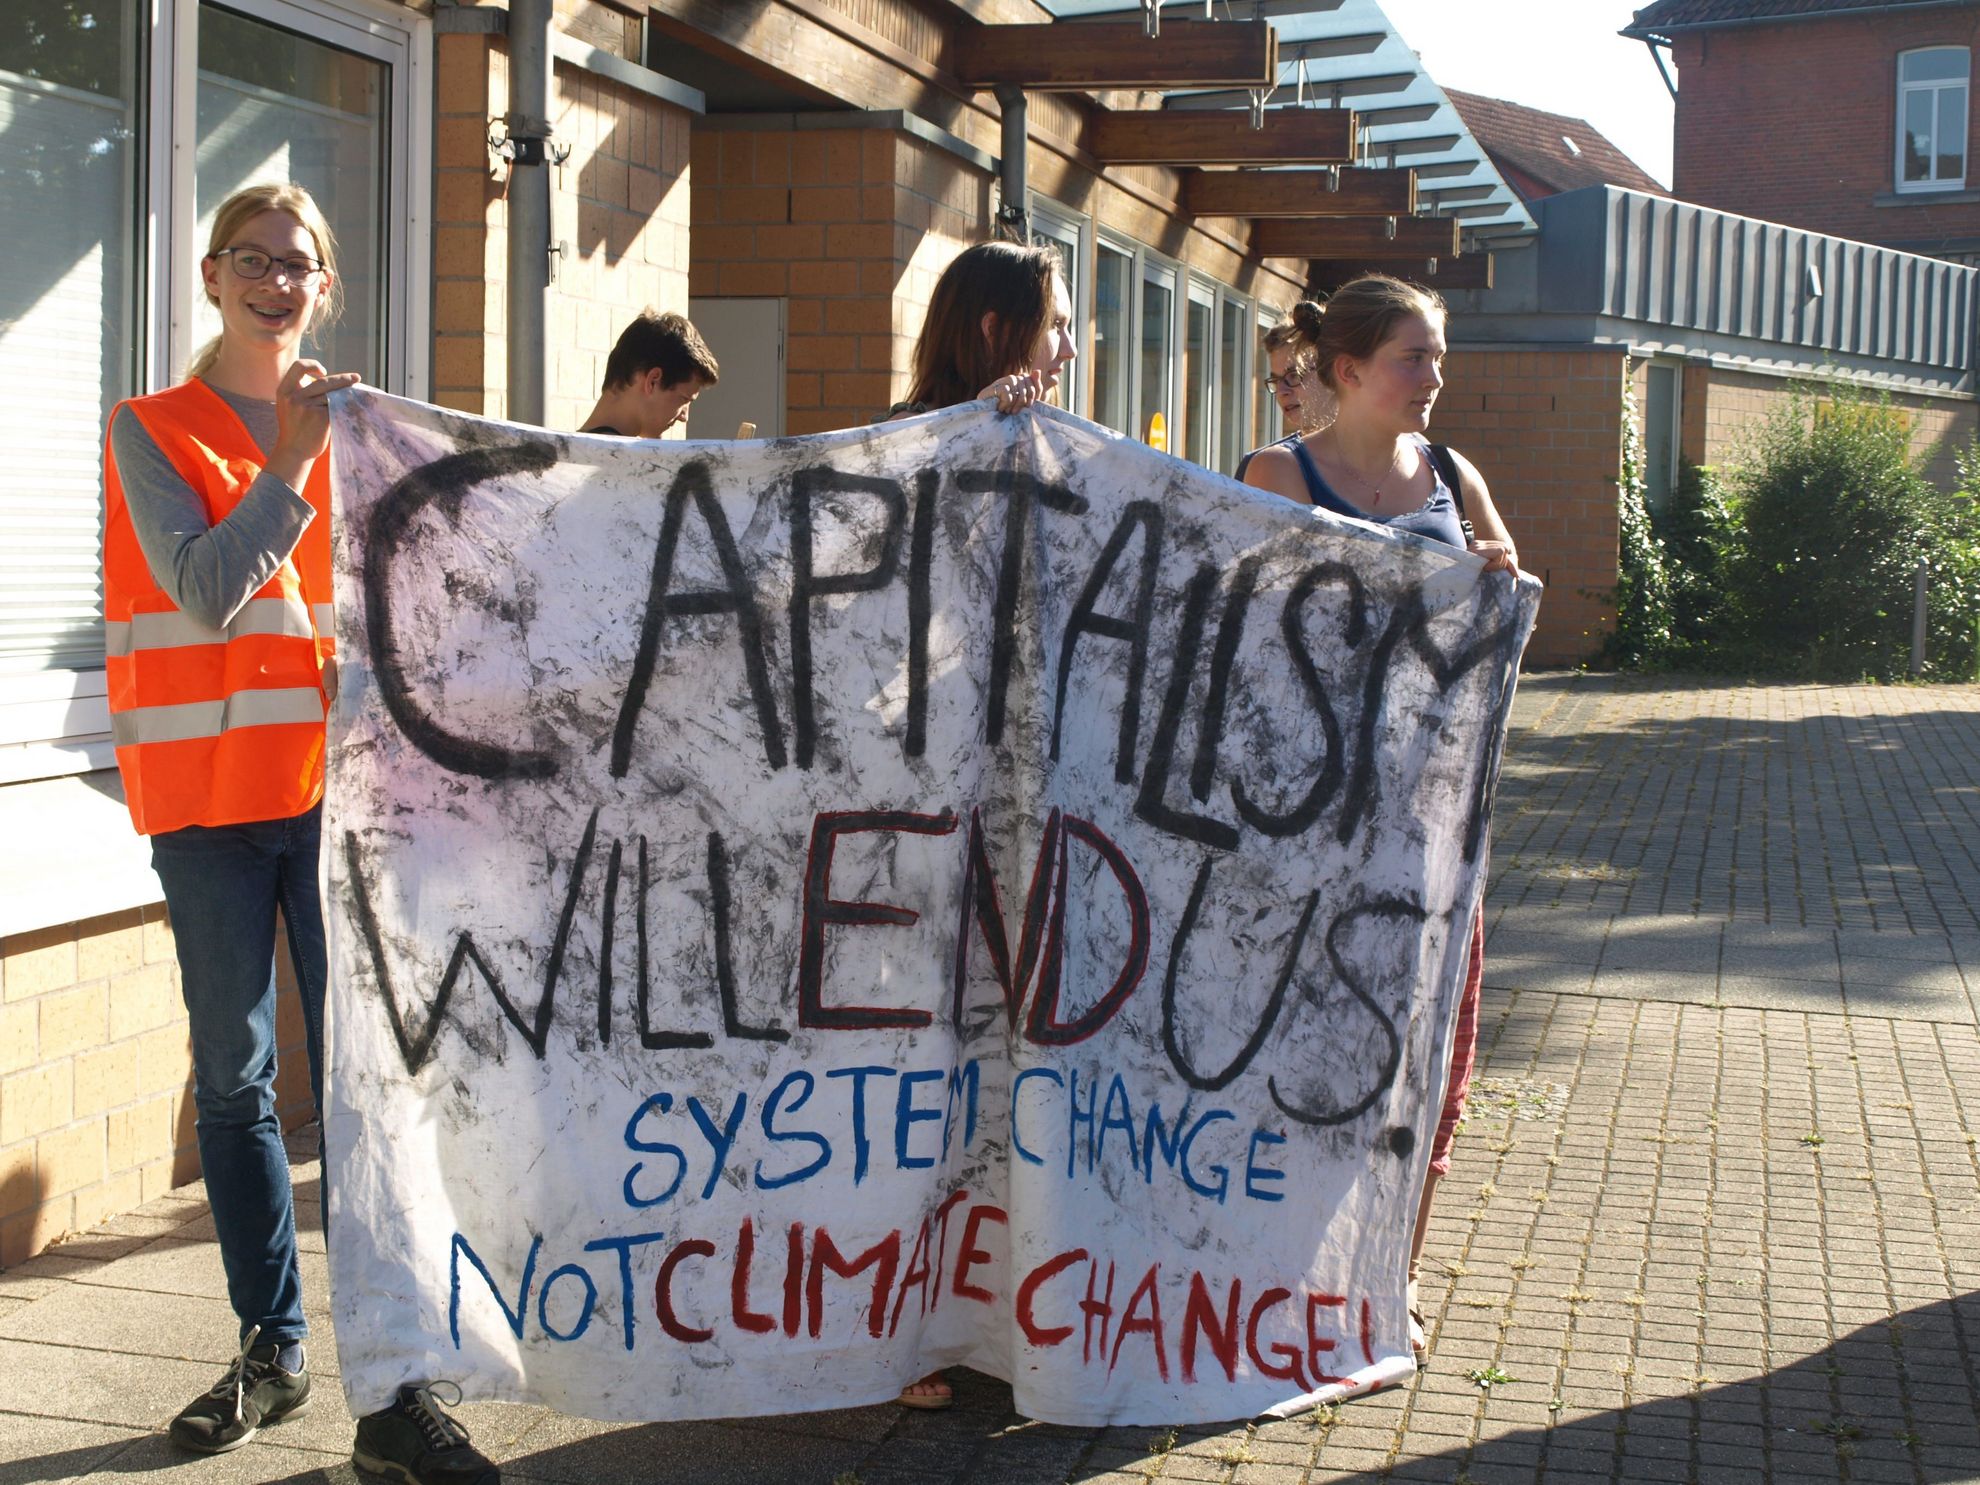 CAPITALISM
WILL END US.
SYSTEM CHANGE
NOT CLIMATE CHANGE!